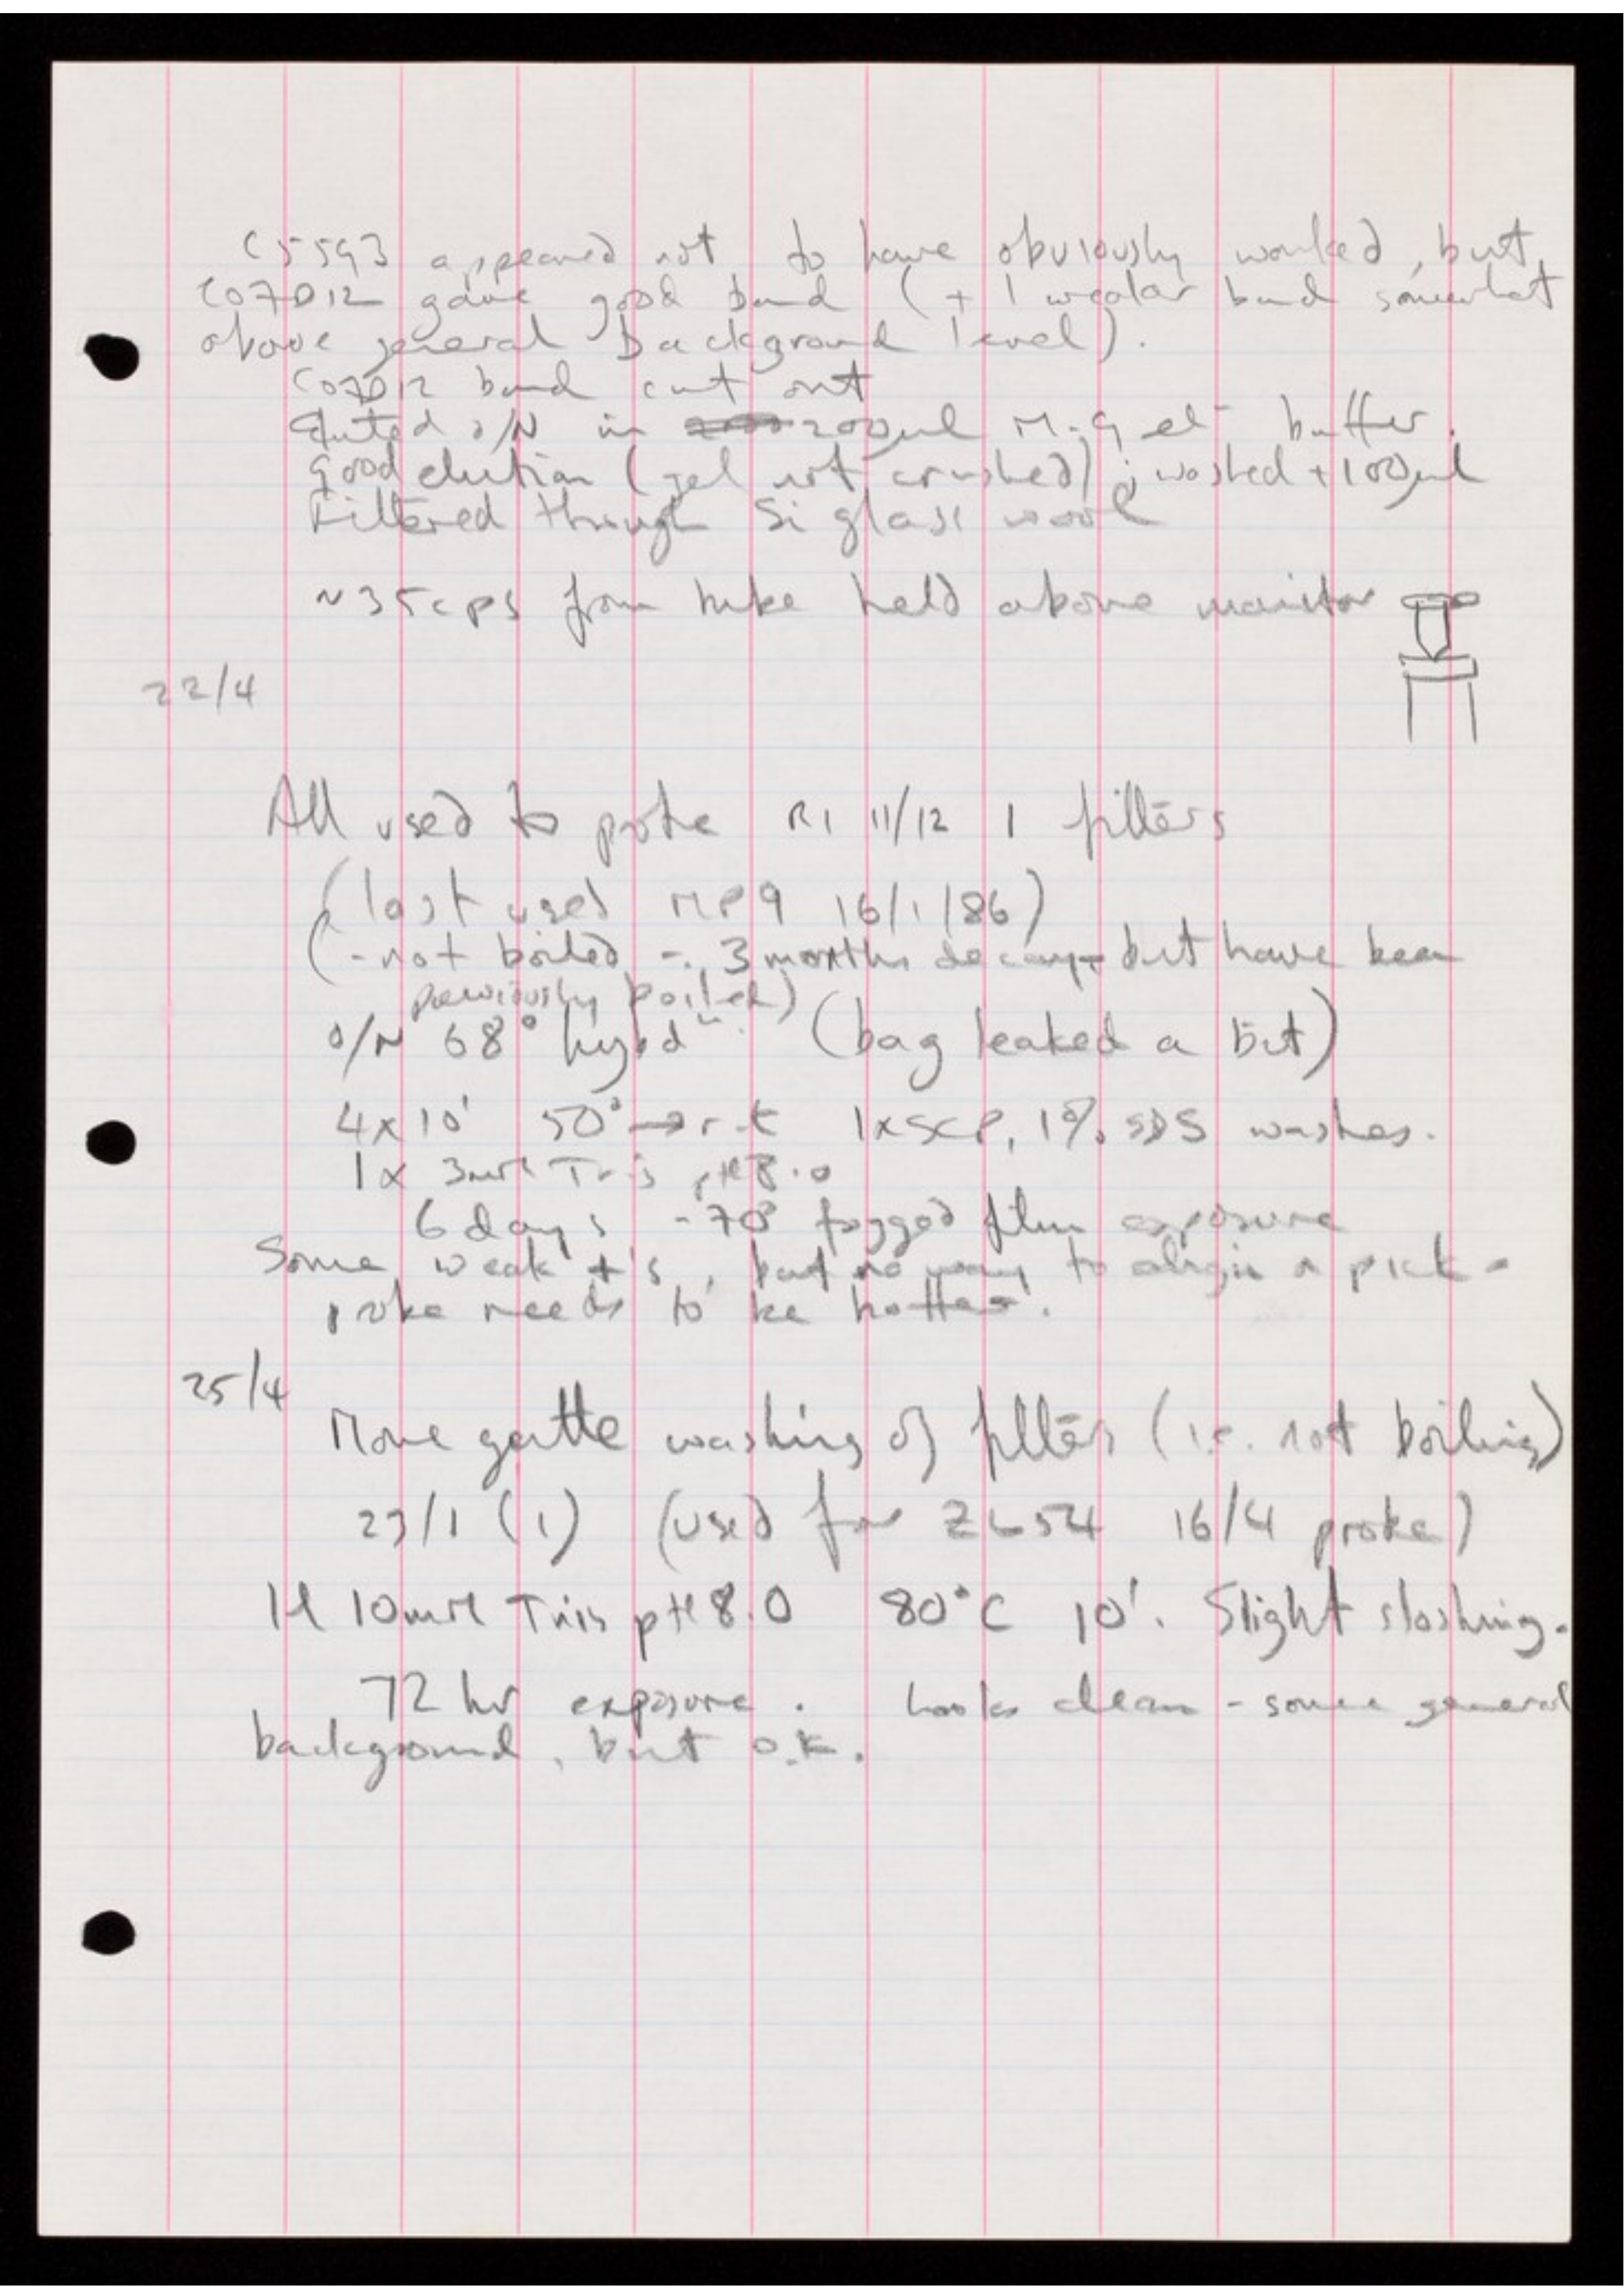 C55G3 appeared not to have obviously worked, but
C07D12 gave good band (+ 1 weaker band somewhat
above general background level).
C07D12 band cut out
Eluted o/N in 200µl M.G el buffer.
Good elution (gel not crushed); washed + 100µl
Filtered through Si glass wool
~35cps from tube held above monitor
22/4
All used to probe R1 11/12 1 filters
(last used MP9 16/1/86)
(-not boiled - 3 months decay - but have been
previously boiled)
o/N 68° hybdn. (bag leaked a bit)
4x10' 50° → r.t 1xSCP, 1% SDS washes.
1x 3mM Tris pH8.0
6 days -70° fogged film exposure
Some weak +'s, but no way to align n pick -
probe needs to be hotter.
25/4
More gentle washing of filters (i.e. not boiling)
23/1 (1) (used for ZL54 16/4 probe)
1l 10mM Tris pH8.0 80°C 10'. Slight sloshing.
72 hr exposure. Looks clean - some general
background, but o.k.